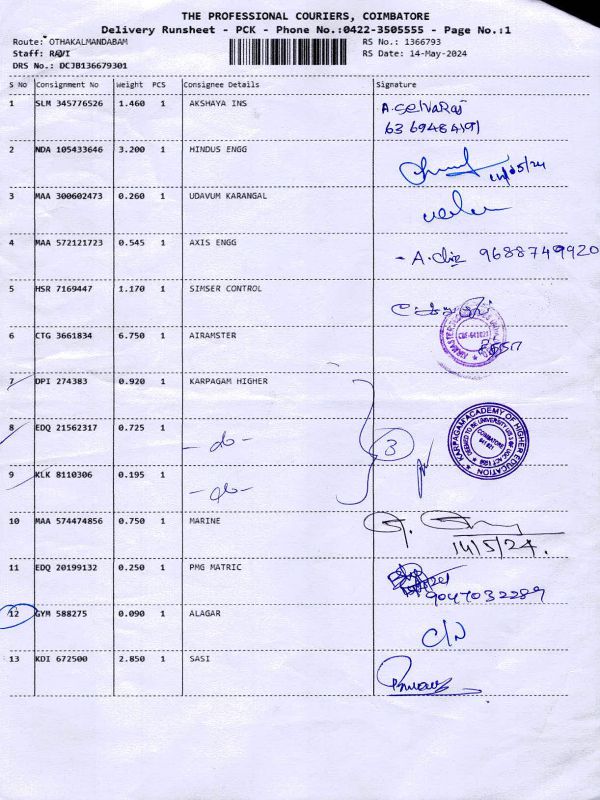 THE PROFESSIONAL COURIERS, COIMBATORE
Delivery Runsheet - PCK - Phone No.:0422-3505555 - Page No.:1
Route: OTHAKALMANDABAM RS No.: 1366793
Staff: RAVI RS Date: 14-May-2024
DRS No.: DCJB136679301
S No Consignment No Weight PCS Consignee Details Signature
1 SLM 345776526 1.460 1 AKSHAYA INS A. Selvaraj
63 69484191
2 NDA 105433646 3.200 1 HINDUS ENGG 14/05/24
3 MAA 300602473 0.260 1 UDAVUM KARANGAL
4 MAA 572121723 0.545 1 AXIS ENGG 9688749920
5 HSR 7169447 1.170 1 SIMSER CONTROL
6 CTG 3661834 6.750 1 AIRAMSTER
7 DPI 274383 0.920 1 KARPAGAM HIGHER
8 EDQ 21562317 0.725 1 - do - 3 KARPAGAM ACADEMY OF HIGHER EDUCATION
COIMBATORE
641 021
9 KLK 8110306 0.195 1 - do -
10 MAA 574474856 0.750 1 MARINE
14/5/24.
11 EDQ 20199132 0.250 1 PMG MATRIC
9047032289
12 GYM 588275 0.090 1 ALAGAR C/N
13 KDI 672500 2.850 1 SASI